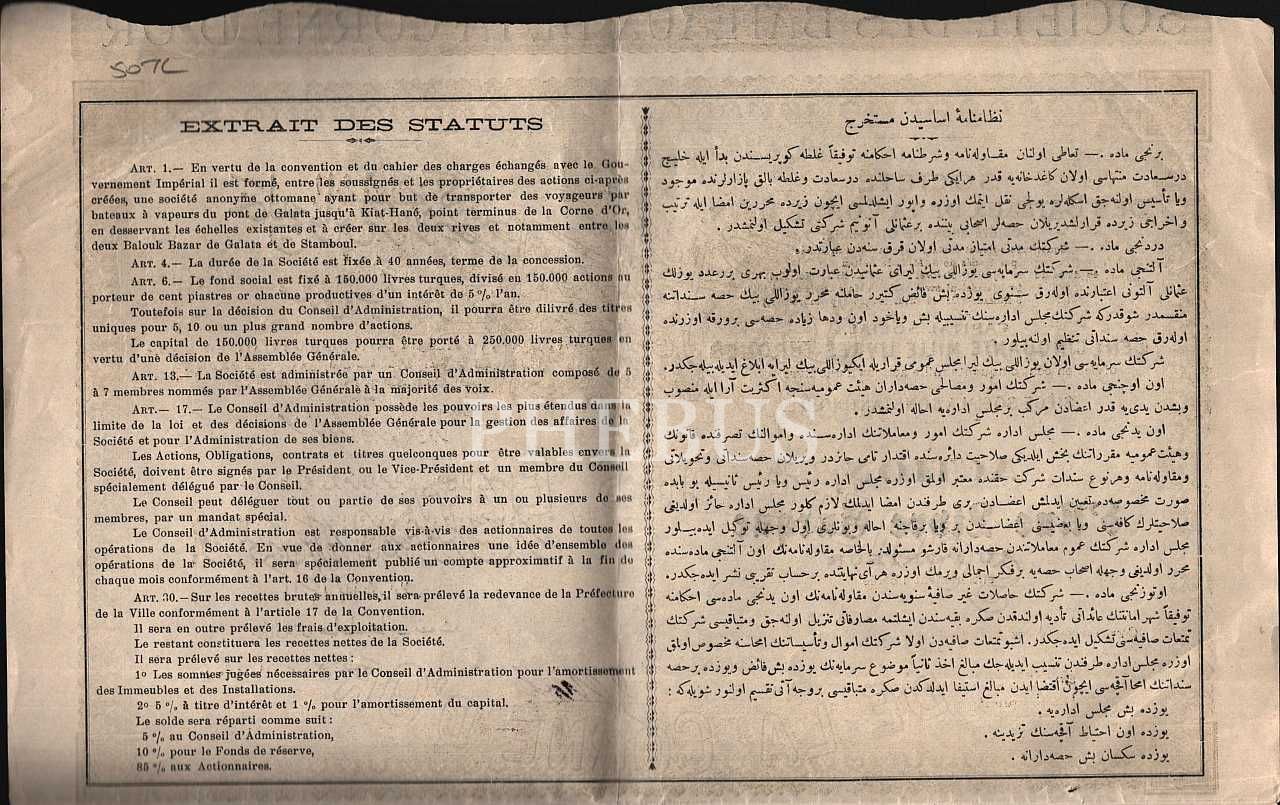 SOCIÉTÉ DES BATEAUX DE LA CORNE D'OR
507L
EXTRAIT DES STATUTS
ART. 1.— En vertu de la convention et du cahier des charges échangés avec le Gou-
vernement Impérial il est formé, entre les soussignés et les propriétaires des actions ci-après
créées, une société anonyme ottomane ayant pour but de transporter des voyageurs par
bateaux à vapeurs du pont de Galata jusqu'à Kiat-Hané, point terminus de la Corne d'Or,
en desservant les échelles existantes et à créer sur les deux rives et notamment entre les
deux Balouk Bazar de Galata et de Stamboul.
ART. 4.— La durée de la Société est fixée à 40 années, terme de la concession.
ART. 6.— Le fond social est fixé à 150.000 livres turques, divisé en 150.000 actions au
porteur de cent piastres or chacune productives d'un intérêt de 5 % l'an.
Toutefois sur la décision du Conseil d'Administration, il pourra être dilivré des titres
uniques pour 5, 10 ou un plus grand nombre d'actions.
Le capital de 150.000 livres turques pourra être porté à 250.000 livres turques en
vertu d'une décision de l'Assemblée Générale.
ART. 13.— La Société est administrée par un Conseil d'Administration composé de 5
à 7 membres nommés par l'Assemblée Générale à la majorité des voix.
ART.— 17.— Le Conseil d'Administration possède les pouvoirs les plus étendus dans la
limite de la loi et des décisions de l'Assemblée Générale pour la gestion des affaires de la
Société et pour l'Administration de ses biens.
Les Actions, Obligations, contrats et titres quelconques pour être valables envers la
Société, doivent être signés par le Président ou le Vice-Président et un membre du Conseil
spécialement délégué par le Conseil.
Le Conseil peut déléguer tout ou partie de ses pouvoirs à un ou plusieurs de ses
membres, par un mandat spécial.
Le Conseil d'Administration est responsable vis-à-vis des actionnaires de toutes les
opérations de la Société. En vue de donner aux actionnaires une idée d'ensemble des
opérations de la Société, il sera spécialement publié un compte approximatif à la fin de
chaque mois conformément à l'art. 16 de la Convention.
ART. 30.— Sur les recettes brutes annuelles, il sera prélevé la redevance de la Préfecture
de la Ville conformément à l'article 17 de la Convention.
Il sera en outre prélevé les frais d'exploitation.
Le restant constituera les recettes nettes de la Société.
Il sera prélevé sur les recettes nettes :
1º Les sommes jugées nécessaires par le Conseil d'Administration pour l'amortissement
des Immeubles et des Installations.
2º 5 % à titre d'intérêt et 1 % pour l'amortissement du capital.
Le solde sera réparti comme suit :
5 % au Conseil d'Administration,
10 % pour le Fonds de réserve,
85 % aux Actionnaires.
نظامنامهٔ اساسیدن مستخرج
برنجی ماده .— تعاطی اولنان مقاوله‌نامه و شرطنامه احکامنه توفیقاً غلطه کوپریسندن بدأ ایله خلیج
درسعادت منتهاسی اولان کاغدخانه‌یه قدر هرایکی طرف ساحلنده درسعادت وغلطه بالق پازارلرنده موجود
ویا تأسیس اولنه‌جق اسکله‌لره یولجی نقل ایتمك اوزره واپور ایشلدلمسی ایچون زیرده محررین امضا ایله ترتیب
و اخراجی زیرده قرارلشدیریلان حصه‌لر اصحابی بیننده برعثمانلی آنونیم شرکتی تشکیل اولنمشدر .
دردنجی ماده .— شرکتك مدتی امتیاز مدتی اولان قرق سنه‌دن عبارتدر .
آلتنجی ماده .— شرکتك سرمایه‌سی یوزاللی بیك لیرای عثمانیدن عبارت اولوب بهری برعدد یوزلك
عثمانلی آلتونی اعتبارنده اوله‌رق سنوی یوزده‌بش فائض کتیرر حاملنه محرر یوزاللی بیك حصه سنداتنه
منقسمدر شوقدرکه شرکتك مجلس اداره‌سنك تنسیبیله بش ویاخود اون ودها زیاده حصه‌سی برورقه اوزرنده
اوله‌رق حصه سنداتی تنظیم اولنه‌بیلور .
شرکتك سرمایه‌سی اولان یوزاللی بیك لیرا مجلس عمومی قراریله ایکیوزاللی بیك لیرایه ابلاغ ایدیله‌بیله‌جکدر.
اون اوچنجی ماده .— شرکتك امور ومصالحی حصه‌داران هیئت عمومیه‌سنجه اکثریت آرا ایله منصوب
وبشدن یدی‌یه قدر اعضادن مرکب برمجلس اداره‌یه احاله اولنمشدر .
اون یدنجی ماده .— مجلس اداره شرکتك امور ومعاملاتنك اداره‌سنده واموالنك تصرفنده قانونك
وهیئت عمومیه مقرراتنك بخش ایلدیکی صلاحیت دائره‌سنده اقتدار تامی حائزدر ویریلان حصه‌سنداتی وتحویلاتی
ومقاوله‌نامه وهرنوع سندات شرکت حقنده معتبر اولمق اوزره مجلس اداره رئیس ویا رئیس ثانیسیله بو بابده
صورت مخصوصه‌ده تعیین ایدلمش اعضادن بری طرفندن امضا ایدلمك لازم کلور مجلس اداره حائز اولدیغی
صلاحیتلرك کافه‌سنی ویا بعضیسنی اعضاسندن بر ویا برقاچنه احاله وبونلری اول وجهله توکیل ایده‌بیلور
مجلس اداره شرکتك عموم معاملاتندن حصه‌دارانه قارشو مسئولدر بالخاصه مقاوله‌نامه‌نك اون آلتنجی ماده‌سنده
محرر اولدیغی وجهله اصحاب حصه‌یه برفکر اجمالی ویرمك اوزره هرآی نهایتنده برحساب تقریبی نشر ایده‌جکدر.
اوتوزنجی ماده .— شرکتك حاصلات غیر صافیهٔ سنویه‌سندن مقاوله‌نامه‌نك اون یدنجی ماده‌سی احکامنه
توفیقاً شهر امانتنك عائداتی تأدیه اولندقدن صکره بقیه‌سندن ایشلتمه مصارفاتی تنزیل اولنه‌جق ومتباقیسی شرکتك
تمتعات صافیه‌سنی تشکیل ایده‌جکدر. اشبو تمتعات صافیه‌دن اولا شرکتك اموال وتأسیساتنك امحاسنه مخصوص اولمق
اوزره مجلس اداره طرفندن تنسیب ایدیله‌جك مبالغ اخذ ثانیاً موضوع سرمایه‌نك یوزده بش فائض ویوزده برحصه
سنداتنك امحا آقچه‌سی ایچون اقتضا ایدن مبالغ استیفا ایدلدکدن صکره متباقیسی بروجه آتی تقسیم اولنور شویله‌که :
یوزده بش مجلس اداره‌یه .
یوزده اون احتیاط آقچه‌سنك تزییدینه .
یوزده سکسان بش حصه‌دارانه .
PHEBUS